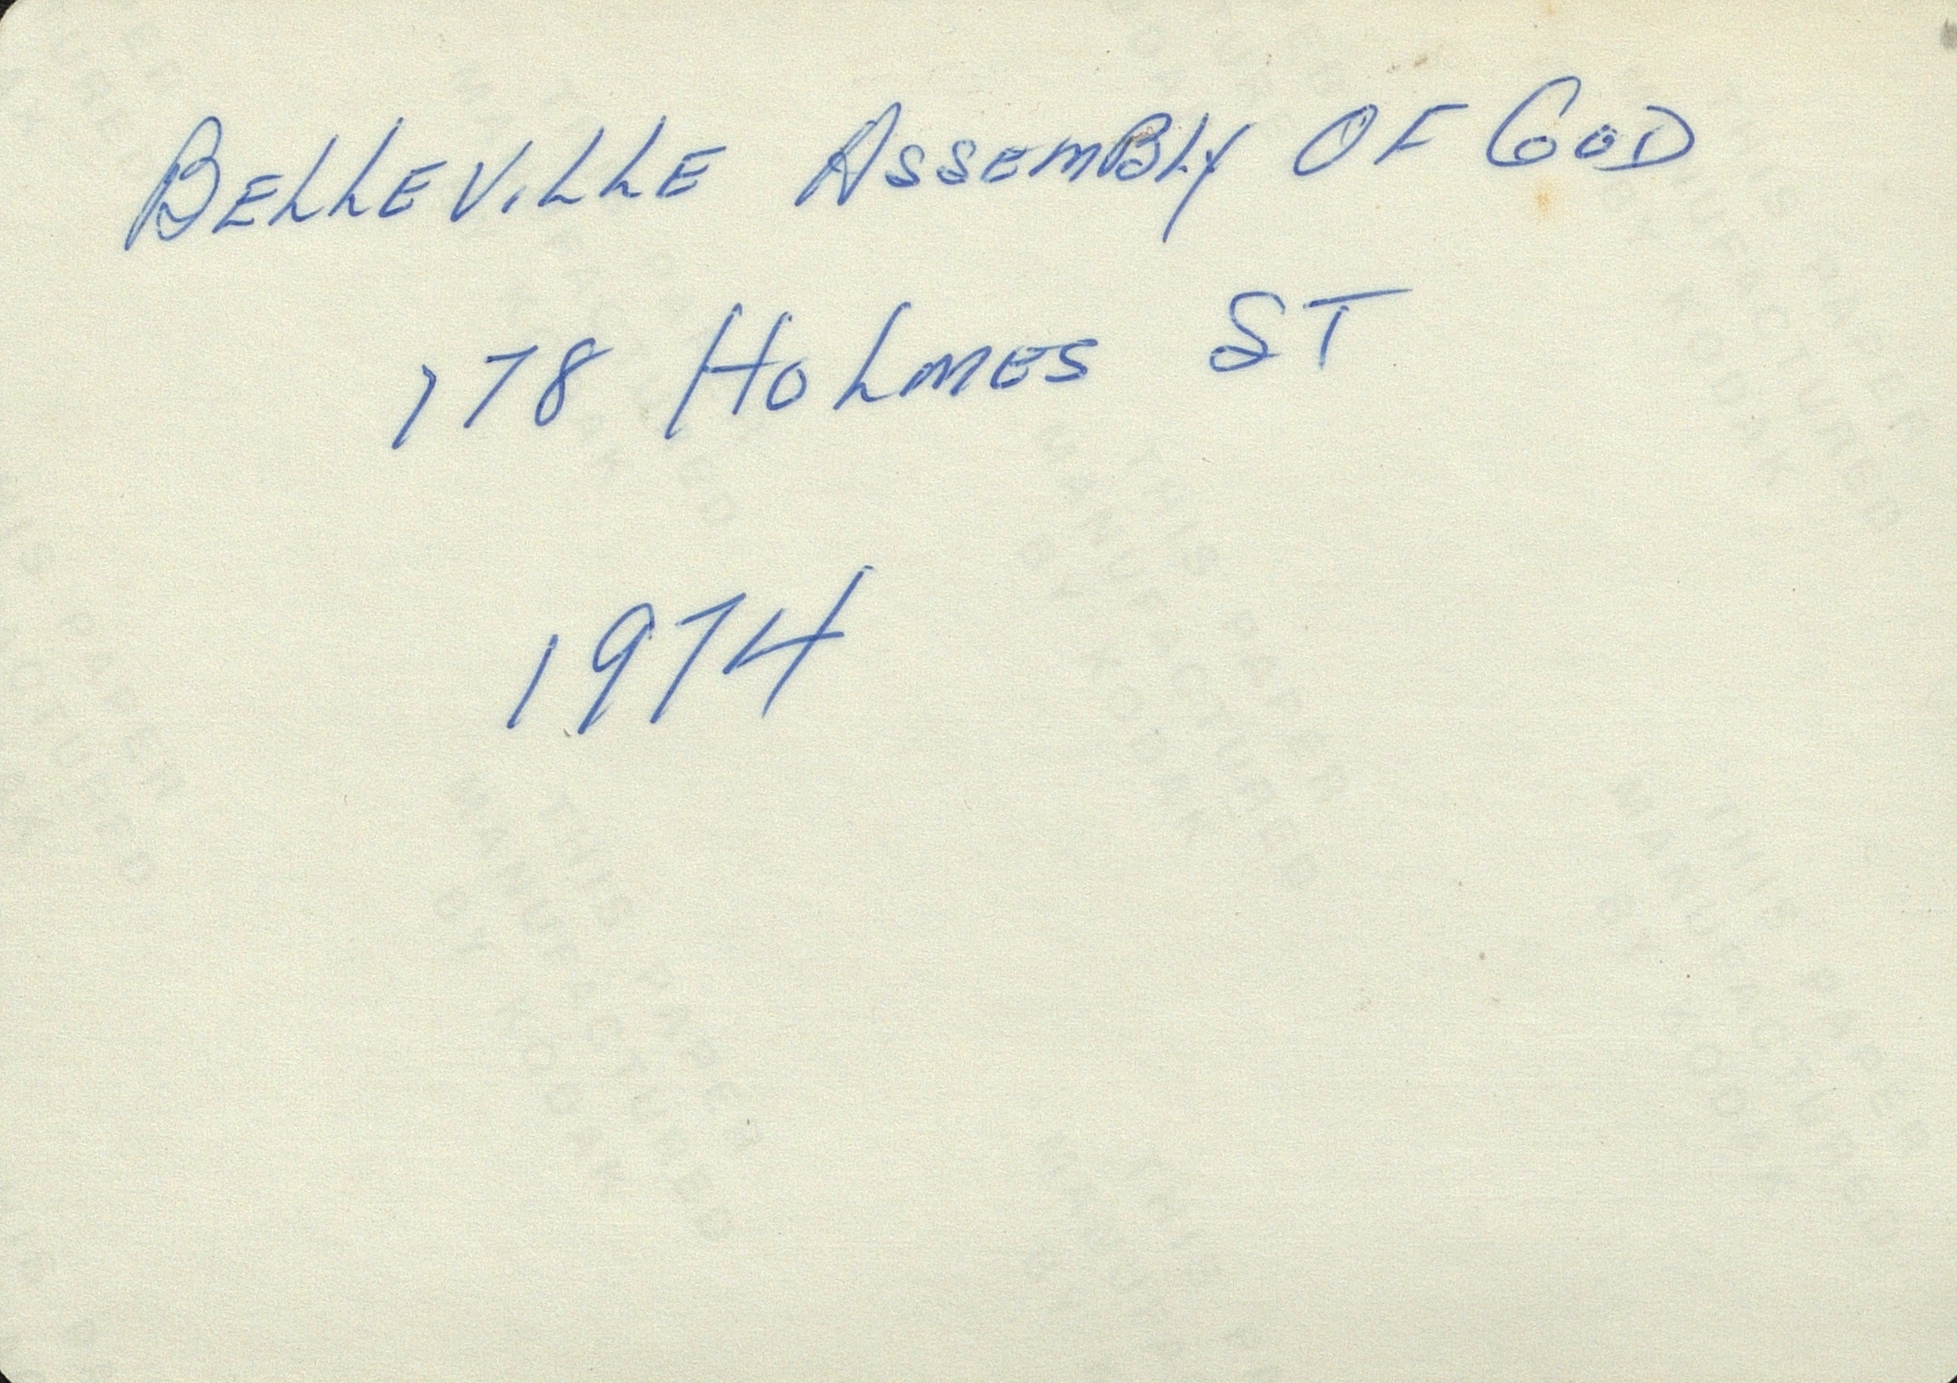 BELLEVILLE ASSEMBLY OF GOD
178 HOLMES ST
1974
THIS PAPER
MANUFACTURED
BY KODAK